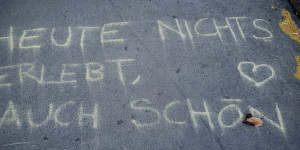 HEUTE NICHTS
ERLEBT,
AUCH SCHÖN